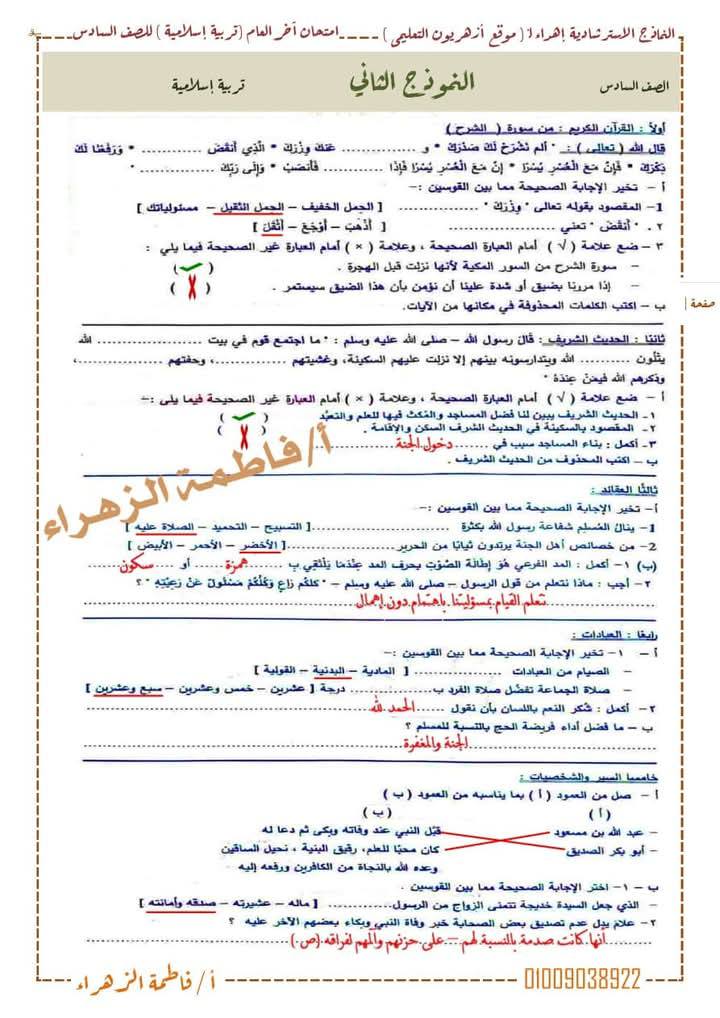 النماذج الاسترشادية إهداء ( موقع أزهريون التعليمي ) ----- امتحان آخر العام (تربية إسلامية ) للصف السادس
الصف السادس النموذج الثاني تربية إسلامية
أولاً : القرآن الكريم : من سورة ( الشرح )
قال الله ( تعالى ) : " ألم نشرح لك صدرك * و .............. عنك وزرك * الذي أنقض .............. * ورفعنا لك
ذكرك * فإن مع العسر يسرا * إن مع العسر يسرا فإذا .............. فانصب * وإلى ربك .............. "
أ - تخير الإجابة الصحيحة مما بين القوسين :-
1- المقصود بقوله تعالى " وزرك " .............. [ الحمل الخفيف – الحمل الثقيل – مسئولياتك ]
٢ . " أنقض " تعني .............. [ أذهب – أوجع – أثقل ]
٣ - ضع علامة ( √ ) أمام العبارة الصحيحة ، وعلامة ( × ) أمام العبارة غير الصحيحة فيما يلي :
– سورة الشرح من السور المكية لأنها نزلت قبل الهجرة . ( ✓ )
– إذا مررنا بضيق أو شدة علينا أن نؤمن بأن هذا الضيق سيستمر . ( X )
ب - اكتب الكلمات المحذوفة في مكانها من الآيات.
صفحة |
ثانيًا : الحديث الشريف : قال رسول الله – صلى الله عليه وسلم : " ما اجتمع قوم في بيت .............. الله
يتلون .............. الله ويتدارسونه بينهم إلا نزلت عليهم السكينة، وغشيتهم ..............، وحفتهم ..............،
وذكرهم الله فيمن عنده "
أ - ضع علامة ( √ ) أمام العبارة الصحيحة ، وعلامة ( × ) أمام العبارة غير الصحيحة فيما يلى :–
١- الحديث الشريف يبين لنا فضل المساجد والمكث فيها للعلم والتعبد ( ✓ )
٢ - المقصود بالسكينة في الحديث الشرف السكن والإقامة . ( X )
٣- أكمل : بناء المساجد سبب في ...... دخول الجنة ......
ب – اكتب المحذوف من الحديث الشريف .
أ/فاطمة الزهراء
ثالثًا العقائد :
أ- تخير الإجابة الصحيحة مما بين القوسين :-
1- ينال المسلم شفاعة رسول الله بكثرة .............. [ التسبيح – التحميد – الصلاة عليه ]
2- من خصائص أهل الجنة يرتدون ثيابًا من الحرير .............. [ الأخضر – الأحمر – الأبيض ]
(ب) ١- أكمل : المد الفرعي هو إطالة الصوت بحرف المد عندما يلتقي ب ..... همزة ..... أو ..... سكون .....
٢- أجب : ماذا نتعلم من قول الرسول – صلى الله عليه وسلم – " كلكم راع وكلكم مسئول عن رعيته " ؟
نتعلم القيام بمسؤليتنا باهتمام دون إهمال
رابعًا : العبادات :
أ – ١- تخير الإجابة الصحيحة مما بين القوسين :-
– الصيام من العبادات .............. [ المادية – البدنية – القولية ]
– صلاة الجماعة تفضل صلاة الفرد ب .............. درجة [ عشرين – خمس وعشرين – سبع وعشرين ]
٢- أكمل : شكر النعم باللسان بأن نقول ..... الحمد لله .....
ب – ما فضل أداء فريضة الحج بالنسبة للمسلم ؟
الجنة والمغفرة
خامسا السير والشخصيات :
أ – صل من العمود ( أ ) بما يناسبه من العمود ( ب )
( أ ) ( ب )
– عبد الله بن مسعود قبّل النبي عند وفاته وبكى ثم دعا له
– أبو بكر الصديق كان محبًا للعلم، رقيق البنية ، نحيل الساقين
وعده الله بالنجاة من الكافرين ورفعه إليه
ب - ١- اختر الإجابة الصحيحة مما بين القوسين .
– الذي جعل السيدة خديجة تتمنى الزواج من الرسول .............. [ ماله – عشيرته – صدقه وأمانته ]
٢- علام يدل عدم تصديق بعض الصحابة خبر وفاة النبي وبكاء بعضهم الآخر عليه ؟
أنها كانت صدمة بالنسبة لهم – على حزنهم وألمهم لفراقه (ص)
أ / فاطمة الزهراء 01009038922